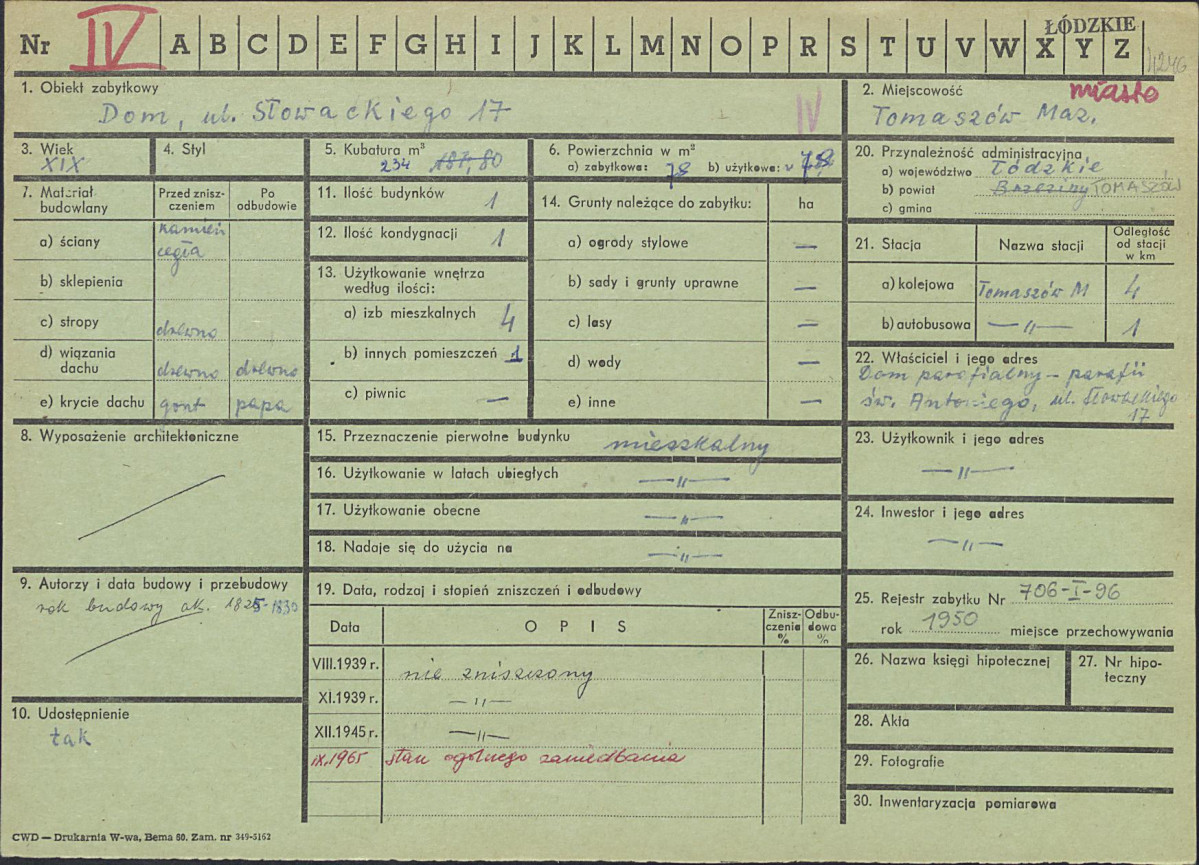 Nr IV A B C D E F G H I J K L M N O P R S T U V W X Y Z
ŁÓDZKIE
1. Obiekt zabytkowy
Dom, ul. Słowackiego 17
IV
2. Miejscowość
miasto
Tomaszów Maz.
3. Wiek
XIX
4. Styl
5. Kubatura m³
234 187,80
6. Powierzchnia w m²
a) zabytkowa: 78 b) użytkowa: 78
7. Materiał budowlany
Przed zniszczeniem
Po odbudowie
a) ściany
kamień
cegła
b) sklepienia
c) stropy
drewno
d) wiązania dachu
drewno drewno
e) krycie dachu
gont papa
8. Wyposażenie architektoniczne
9. Autorzy i data budowy i przebudowy
rok budowy ok. 1825-1830
10. Udostępnienie
tak
11. Ilość budynków
1
12. Ilość kondygnacji
1
13. Użytkowanie wnętrza
według ilości:
a) izb mieszkalnych 4
b) innych pomieszczeń 1
c) piwnic —
14. Grunty należące do zabytku: ha
a) ogrody stylowe —
b) sady i grunty uprawne —
c) lasy —
d) wody —
e) inne —
15. Przeznaczenie pierwotne budynku mieszkalny
16. Użytkowanie w latach ubiegłych —"—
17. Użytkowanie obecne —"—
18. Nadaje się do użycia na —"—
19. Data, rodzaj i stopień zniszczeń i odbudowy
Data OPIS Zniszczenia % Odbudowa %
VIII.1939 r. nie zniszczony
XI.1939 r. —"—
XII.1945 r. —"—
IX.1965 stan ogólnego zaniedbania
20. Przynależność administracyjna
a) województwo Łódzkie
b) powiat Brzeziny TOMASZÓW
c) gmina
21. Stacja Nazwa stacji Odległość od stacji w km
a) kolejowa Tomaszów M 4
b) autobusowa —"— 1
22. Właściciel i jego adres
Dom parafialny – parafii
św. Antoniego, ul. Słowackiego
17
23. Użytkownik i jego adres
—"—
24. Inwestor i jego adres
—"—
25. Rejestr zabytku Nr 706-I-96
rok 1950 miejsce przechowywania
26. Nazwa księgi hipotecznej
27. Nr hipoteczny
28. Akta
29. Fotografie
30. Inwentaryzacja pomiarowa
CWD — Drukarnia W-wa, Bema 60. Zam. nr 349-5162